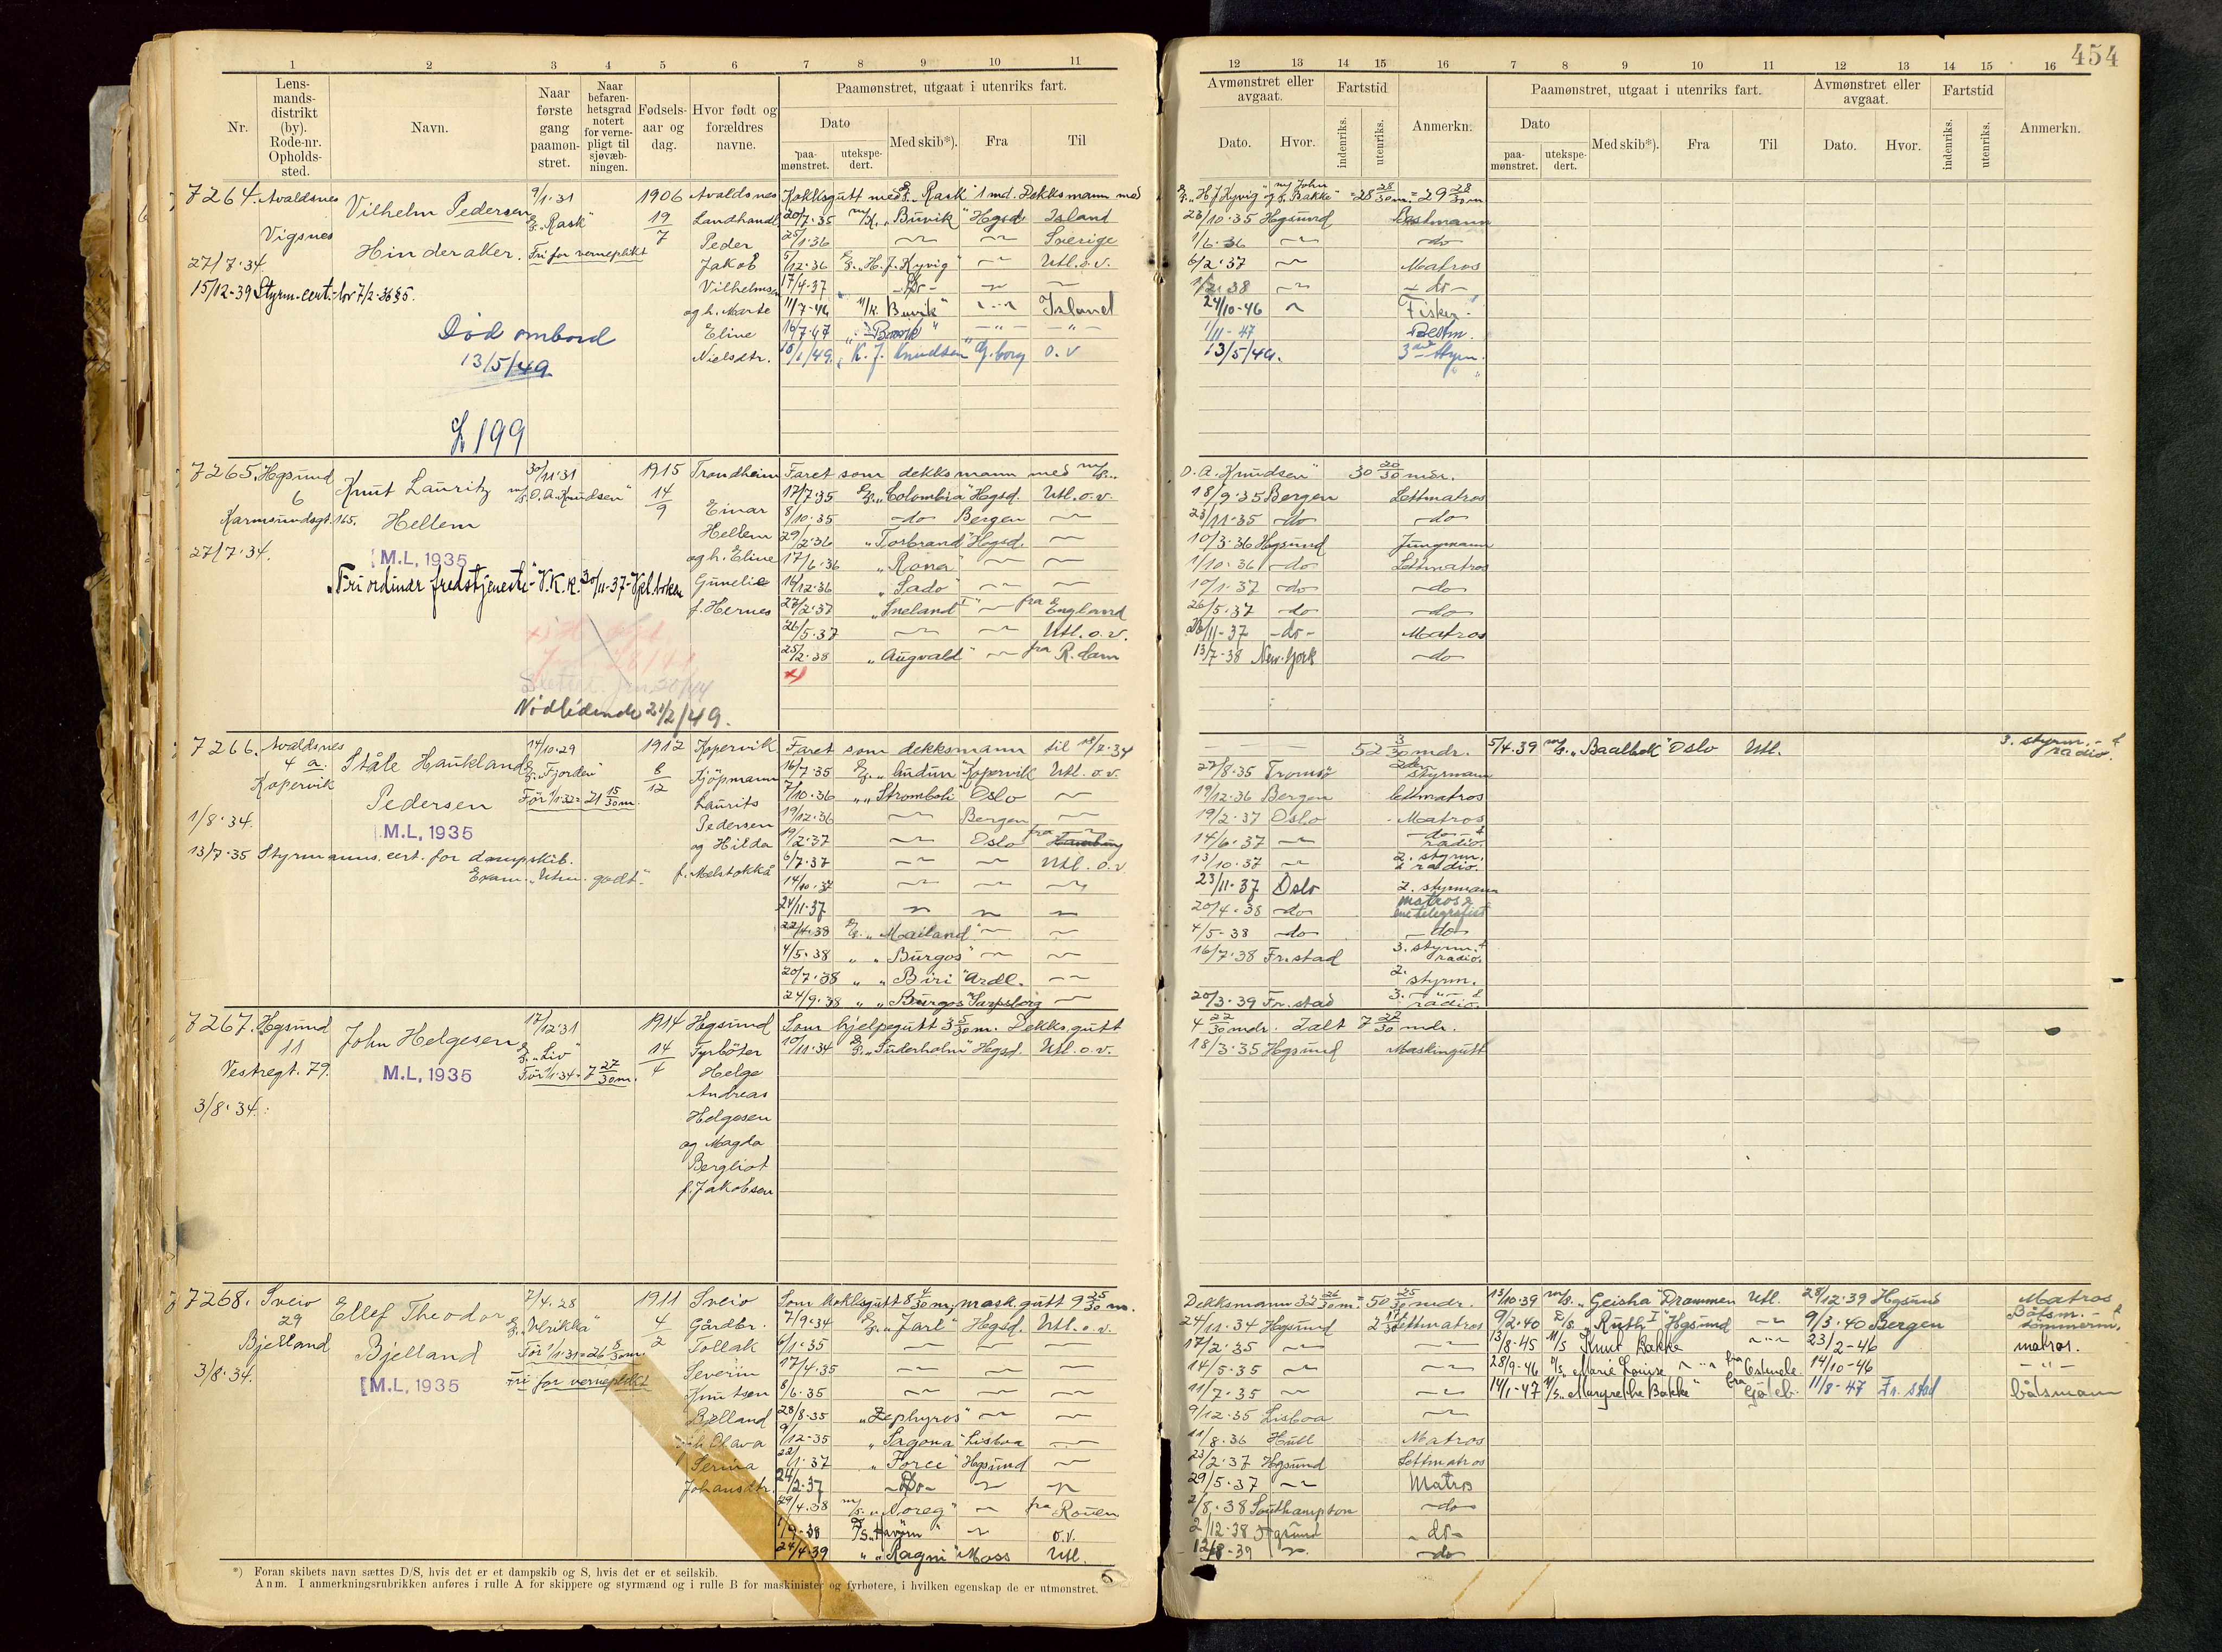 454
1 2 3 4 5 6 7 8 9 10 11
Nr.
Lens-
mands-
distrikt
(by).
Rode-nr.
Opholds-
sted.
Navn.
Naar
første
gang
paamøn-
stret.
Naar
befaren-
hetsgrad
notert
for verne-
pligt til
sjøvæb-
ningen.
Fødsels-
aar og
dag.
Hvor født og
forældres
navne.
Paamønstret, utgaat i utenriks fart.
Dato
paa-
mønstret.
utekspe-
dert.
Med skib*).
Fra
Til
12 13 14 15 16 7 8 9 10 11 12 13 14 15 16
Avmønstret eller
avgaat.
Dato.
Hvor.
Fartstid
indenriks.
utenriks.
Anmerkn.
Paamønstret, utgaat i utenriks fart.
Dato
paa-
mønstret.
utekspe-
dert.
Med skib*).
Fra
Til
Avmønstret eller
avgaat.
Dato.
Hvor.
Fartstid
indenriks.
utenriks.
Anmerkn.
7264. Avaldsnes
Vigsnes
27/7.34.
15/12-39 Styrm.cert.
Vilhelm Pedersen
Hinderaker.
9/1.31
"Rask"
Fri for verneplikt
Død ombord
13/5/49
L 199
1906
19
7
Avaldsnes
Landhandl
Peder
Jakob
Vilhelmsen
og h. Marte
Eline
Nielsdtr.
Kokksgutt med "Rask" 1 md. Dekksmann med
20/7.35 "Buvik" Hgsd. Island
25/1.36 Sverige
5/12.36 "H. J. Kyvig" Utl.o.v.
17/4.37 Do
11/7-46 "Buvik" Island
16/7.47 "Buvik"
18/1/49. K. J. Knudsen G.borg o.v
"H J Kyvig" og "John Bakke" = 28 28/30 m. = 29 28/30 m
23/10.35 Hgsund Bestmann
1/6.36 do
6/2.37 Matros
1/2.38 do
24/10-46 Fisker
1/11-47 Bestm.
13/5/49. 3 styrm.
7265. Hgsund
6
Karmsundsgt. 165.
27/7.34.
Knut Lauritz
Hellem
M.L, 1935
30/11.31
"O.A. Knudsen"
"Fri ordinær fredstjeneste" V.K.K. 30/11-37-Vpl.boken
Nødlidende 21/2/49.
1915
14
9
Trondheim
Einar
Hellem
og h. Eline
Gunelie
f. Hernes
Faret som dekksmann med
17/7.35 "Colombia" Hgsd. Utl.o.v.
8/10.35 do Bergen
29/2.36 "Torbrand" Hgsd.
17/6.36 "Rona"
16/12.36 "Sado"
27/2.37 "Sneland I" fra England
26/5.37 Utl.o.v.
25/2.38 "Augvald" fra R.dam
O. A. Knudsen" 30 20/30 mdr.
18/9.35 Bergen Lettmatros
23/11.35 do do
10/3.36 Hgsund Jungmann
1/10.36 do Lettmatros
10/1.37 do do
26/5.37 do do
26/11-37 do Matros
13/7-38 New-York do
7266. Avaldsnes
4 a.
Kopervik
1/8.34.
13/7.35 Styrmanns cert. for dampskib.
Exam. "Utm. godt."
Ståle Haukland
Pedersen
M.L, 1935
14/10.29
"Fjorden"
Før 1/1.32 = 21 15/30 m.
1912
8
12
Kopervik
Kjøpmann
Laurits
Pedersen
og Hilda
f. Melstokkå
Faret som dekksmann til 18/7.34
16/7.35 "Audun" Kopervik Utl.o.v.
7/10.36 "Stromboli" Oslo
19/12.36 Bergen
19/2.37 Oslo fra Hamburg
6/7.37 Utl.o.v
14/10.37
24/11.37
22/4.38 "Mailand"
4/5.38 "Burgos"
20/7.38 "Biri" Ardl.
24/9.38 "Burgos" Sarpsborg
52 3/30 mdr.
27/8.35 Tromsø styrmann
19/12.36 Bergen lettmatros
19/2.37 Oslo Matros
14/6.37 do radio.
13/10.37 2. styrm. & radio.
23/11.37 Oslo 2. styrmann
20/4.38 do matros & telegrafist
4/5-38 do do
16/7.38 Fr.stad 3. styrm. & radio.
2. styrm.
20/3.39 Fr.stad 3. & radio.
5/4.39 "Baalbek" Oslo Utl. 3. styrm. & radio.
7267. Hgsund
11
Vestregt. 79.
3/8.34.
John Helgesen
M.L, 1935
17/12.31
"Liv"
Før 1/1.34 = 7 27/30 m.
1914
14
4
Hgsund
Fyrbøter
Helge
Andreas
Helgesen
og Magda
Bergliot
f. Jakobsen
Som hjelpegutt 3 5/30 m. Dekks.gutt
10/11.34 "Suderholm" Hgsd. Utl.o.v.
4 22/30 mdr. Ialt 7 27/30 mdr.
18/3.35 Hgsund Maskingutt
7268. Sveio
29
Bjelland
3/8.34.
Ellef Theodor
Bjelland
M.L, 1935
7/4.28
"Ulrikka"
Før 1/1.31 = 26 8/30 m.
Fri for verneplikt
1911
4
2
Sveio
Gårdbr.
Tollak
Severin
Knutsen
Bjelland
Olava
Serina
Johansdtr.
Som kokksgutt 8 4/30 m. mask.gutt 9 25/30 m.
7/9.34 "Jarl" Hgsd. Utl.o.v.
6/1.35
17/4.35
8/6.35
28/8.35 "Zephyros"
9/12.35 "Sagona" Lisboa
22/1.37 "Force" Hgsund
24/2.37 Do
29/4.38 "Noreg" fra Rouen
1/9-38 "Havørn" o.v.
24/4.39 "Ragni" Moss Utl.
Dekksmann 32 26/30 m. = 50 25/30 mdr.
24/11.34 Hgsund Lettmatros
17/2.35
14/5.35
11/7.35
9/12.35 Lisboa
11/8.36 Hull Matros
23/2.37 Hgsund Lettmatros
29/5.37 Matros
2/8.38 Southampton do
2/12-38 Hgsund do
12/8-39 do
13/10.39 "Geisha" Drammen Utl. 28/12.39 Hgsund Matros
9/2.40 "Ruth I" Hgsund 9/3.40 Bergen Båtsm. & tømmerm.
13/8-45 M/S Knut Bakke 23/2-46 matros.
28/9-46 "Marie Louise" fra 14/10-46
14/1-47 M/S "Margrethe Bakke" fra Gøteb. 11/8-47 Fr.stad båtsmann
*) Foran skibets navn sættes D/S, hvis det er et dampskib og S, hvis det er et seilskib.
Anm. I anmerkningsrubrikken anføres i rulle A for skippere og styrmænd og i rulle B for maskinister og fyrbøtere, i hvilken egenskap de er utmønstret.